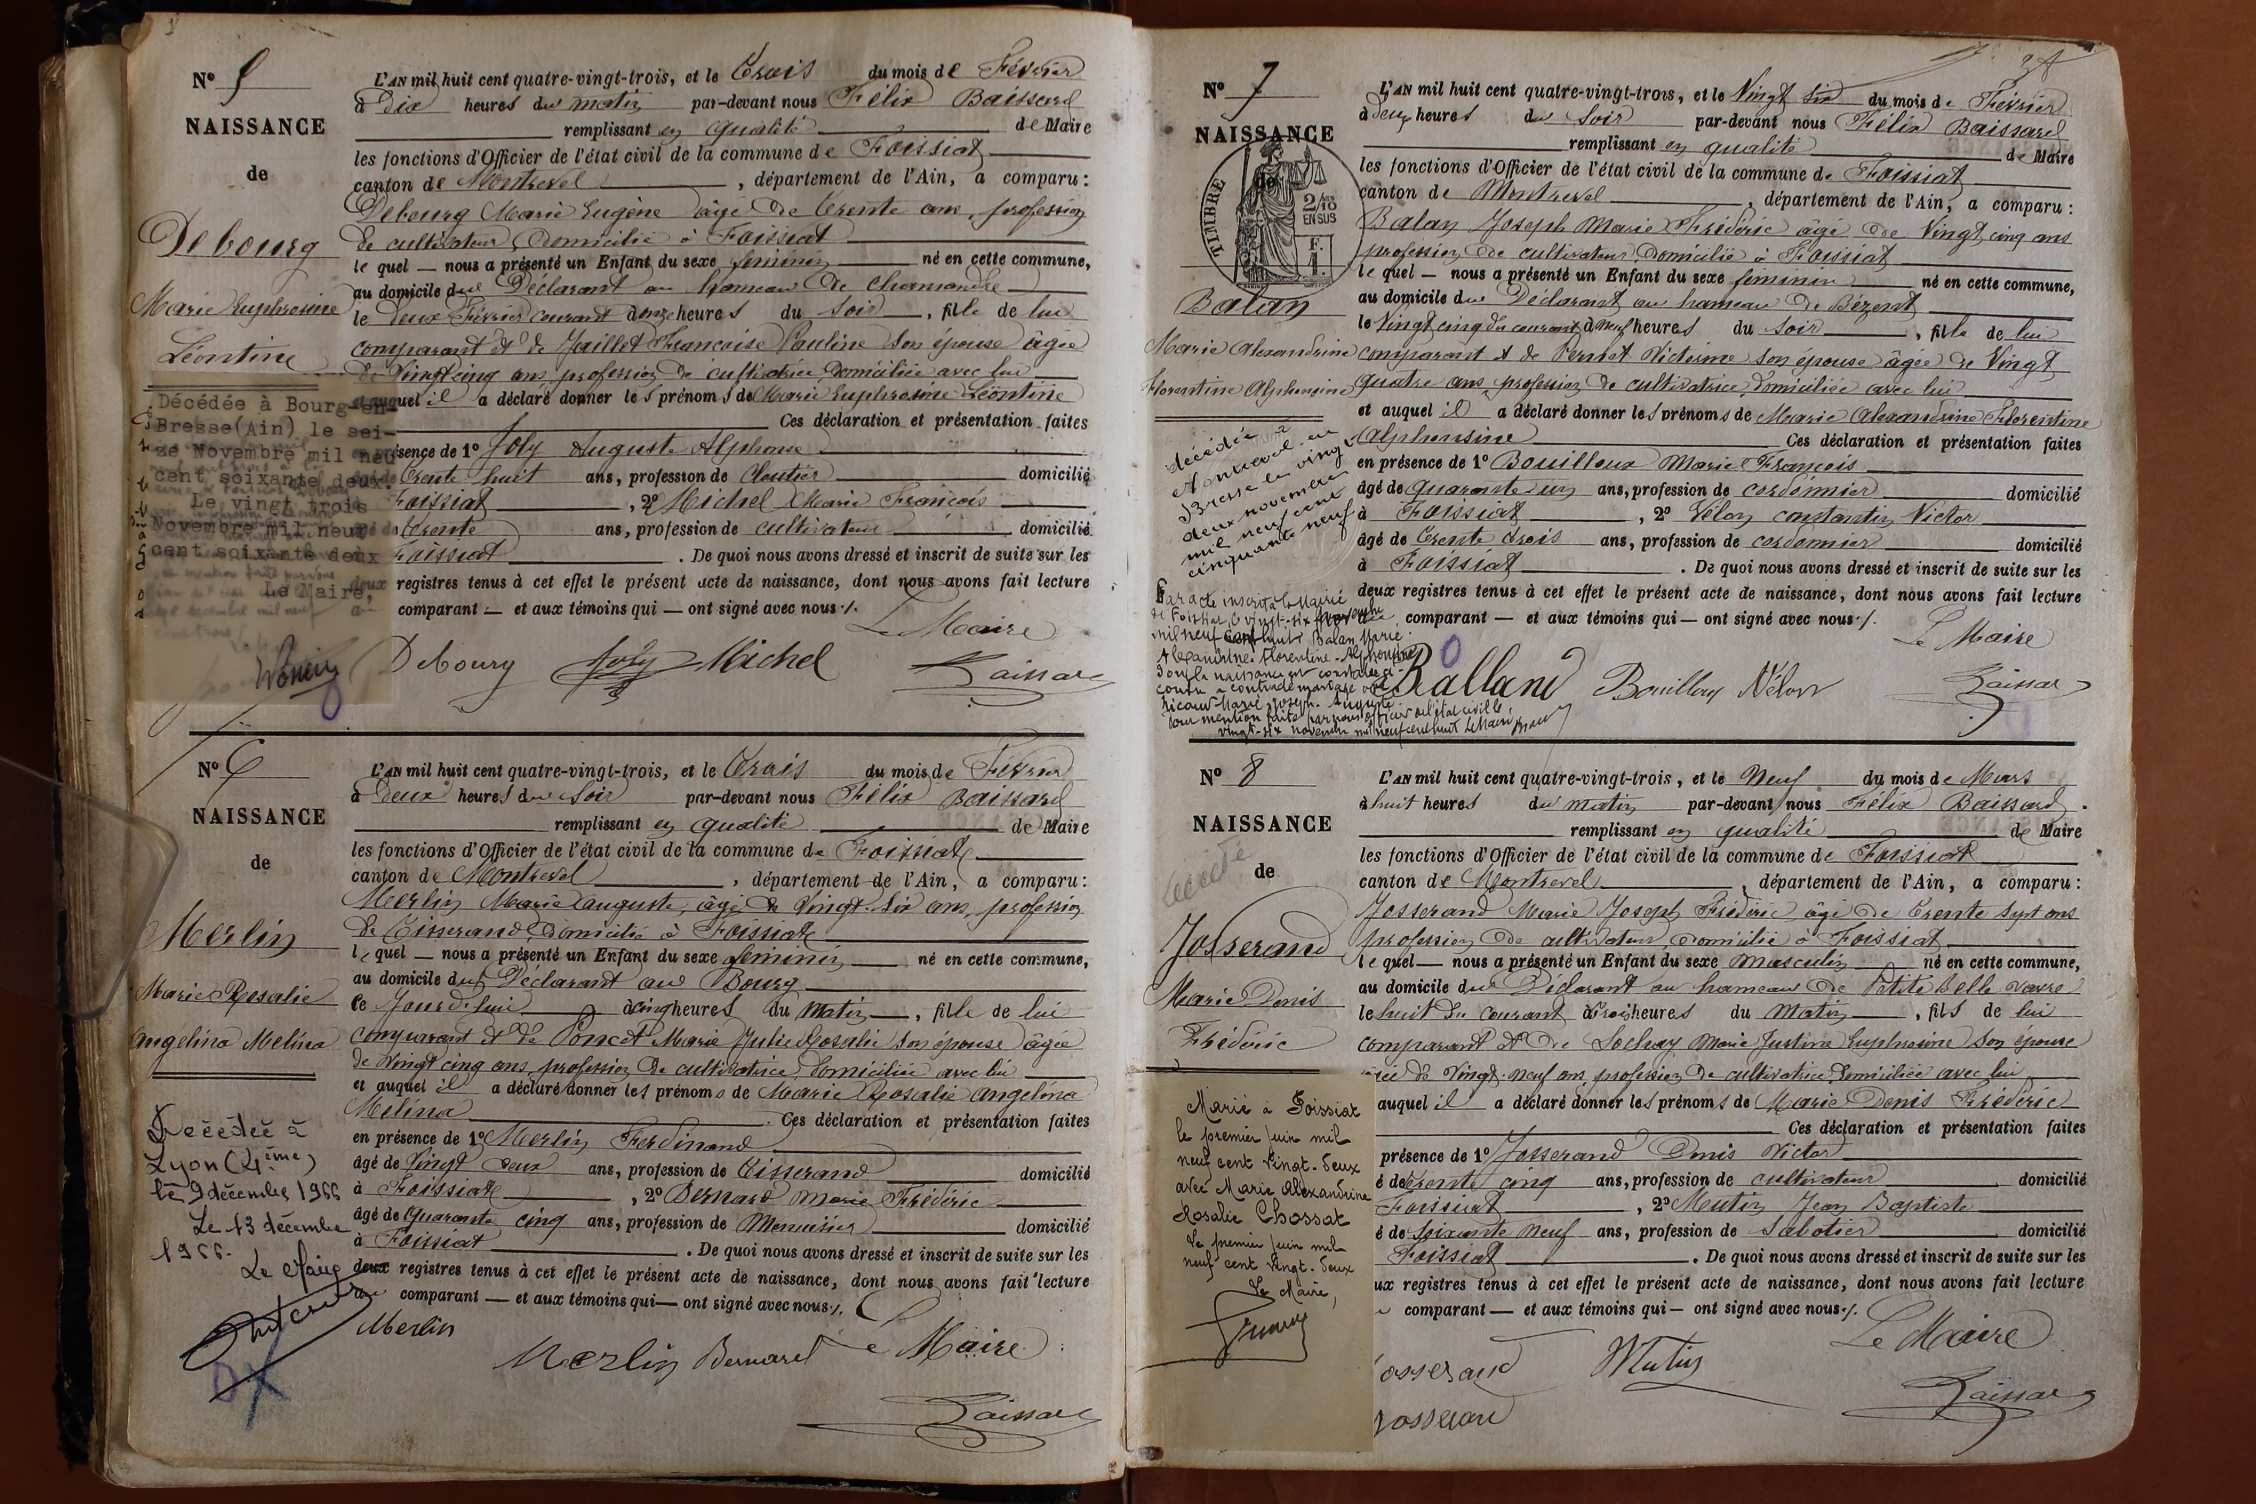 N° 5
NAISSANCE
de
Debourg
Marie Euphrosine
Léontine
Décédée à Bourg-en-
Bresse(Ain) le sei-
ze Novembre mil neuf
cent soixante deux.
Le vingt trois
Novembre mil neuf
cent soixante deux
Le Maire,
L'AN mil huit cent quatre-vingt-trois, et le Trois du mois de Février
à Dix heures du matin par-devant nous Félix Baissard
remplissant en qualité de Maire
les fonctions d'Officier de l'état civil de la commune de Foissiat
canton de Montrevel, département de l'Ain, a comparu:
Debourg Marie Eugène âgé de Trente ans, profession
de cultivateur, domicilié à Foissiat
lequel — nous a présenté un Enfant du sexe féminin né en cette commune,
au domicile du Déclarant au hameau de
le deux Février courant à onze heures du soir, fille de lui
comparant et de Jaillet Françoise Pauline son épouse âgée
de Vingt cinq ans profession de cultivatrice domiciliée avec lui
et auquel il a déclaré donner les prénoms de Marie Euphrosine Léontine
Ces déclaration et présentation faites
sence de 1° Joly Auguste Alphonse
Trente huit ans, profession de Cloutier domicilié
Foissiat, 2° Michel Marie François
de Trente ans, profession de cultivateur domicilié
Foissiat. De quoi nous avons dressé et inscrit de suite sur les
deux registres tenus à cet effet le présent acte de naissance, dont nous avons fait lecture
au comparant — et aux témoins qui — ont signé avec nous ./.
Le Maire
Debourg Joly Michel Baissard
N° 6
NAISSANCE
de
Merlin
Marie Rosalie
Angelina Melina
Décédée à
Lyon (4ème)
le 9 décembre 1966
Le 13 décembre
1966.
Le Maire
L'AN mil huit cent quatre-vingt-trois, et le Trois du mois de Février
à Deux heures du soir par-devant nous Félix Baissard
remplissant en qualité de Maire
les fonctions d'Officier de l'état civil de la commune de Foissiat
canton de Montrevel, département de l'Ain, a comparu:
Merlin Marie Auguste, âgé de Vingt-six ans, profession
de Tisserand, domicilié à Foissiat
lequel — nous a présenté un Enfant du sexe féminin né en cette commune,
au domicile du Déclarant au Bourg
le Jourd'hui à cinq heures du Matin, fille de lui
comparant et de Poncet Marie Julie Rosalie son épouse âgée
de Vingt cinq ans, profession de cultivatrice, domiciliée avec lui
et auquel il a déclaré donner les prénoms de Marie Rosalie Angelina
Mélina Ces déclaration et présentation faites
en présence de 1° Merlin Ferdinand
âgé de Vingt deux ans, profession de Tisserand domicilié
à Foissiat, 2° Bernard Marie Frédéric
âgé de Quarante cinq ans, profession de Menuisier domicilié
à Foissiat. De quoi nous avons dressé et inscrit de suite sur les
deux registres tenus à cet effet le présent acte de naissance, dont nous avons fait lecture
au comparant — et aux témoins qui — ont signé avec nous ./.
Merlin Merlin Bernard Le Maire
Baissard
N° 7
NAISSANCE
de
TIMBRE
2/10 EN SUS
F. 1.
Balan
Marie Alexandrine
Florentine Alphonsine
décédée
à Montrevel en
Bresse le vingt
deux novembre
mil neuf cent
cinquante neuf
Par acte inscrit à la Mairie
de Foissiat le vingt-six novembre
mil neuf cent huit Balan Marie
Alexandrine Florentine Alphonsine
dont la naissance est constatée ci-
contre a contracté mariage avec
Marie Joseph Auguste
dont mention faite par nous officier de l'état civil le
vingt-six novembre mil neuf cent huit Le Maire
L'AN mil huit cent quatre-vingt-trois, et le Vingt six du mois de Février
à Deux heures du soir par-devant nous Félix Baissard
remplissant en qualité de Maire
les fonctions d'Officier de l'état civil de la commune de Foissiat
canton de Montrevel, département de l'Ain, a comparu:
Balan Joseph Marie Frédéric âgé de Vingt cinq ans
profession de cultivateur, domicilié à Foissiat
lequel — nous a présenté un Enfant du sexe féminin né en cette commune,
au domicile du Déclarant au hameau de Bézent
le Vingt cinq du courant à neuf heures du soir, fille de lui
comparant et de Pernet Victorine son épouse âgée de Vingt
quatre ans, profession de cultivatrice, domiciliée avec lui
et auquel il a déclaré donner les prénoms de Marie Alexandrine Florentine
Alphonsine Ces déclaration et présentation faites
en présence de 1° Bouilloux Marie François
âgé de quarante un ans, profession de cordonnier domicilié
à Foissiat, 2° Vélon constantin Victor
âgé de Trente trois ans, profession de cordonnier domicilié
à Foissiat. De quoi nous avons dressé et inscrit de suite sur les
deux registres tenus à cet effet le présent acte de naissance, dont nous avons fait lecture
comparant — et aux témoins qui — ont signé avec nous ./.
Le Maire
Balland Bouilloux Vélon Baissard
N° 8
NAISSANCE
de
décédé
Josserand
Marie Denis
Frédéric
Marié à Foissiat
le premier juin mil
neuf cent vingt-deux
avec Marie Alexandrine
Rosalie Chossat
Le premier juin mil
neuf cent vingt-deux
Le Maire,
L'AN mil huit cent quatre-vingt-trois, et le Neuf du mois de Mars
à huit heures du matin par-devant nous Félix Baissard
remplissant en qualité de Maire
les fonctions d'Officier de l'état civil de la commune de Foissiat
canton de Montrevel, département de l'Ain, a comparu:
Josserand Marie Joseph Frédéric âgé de Trente sept ans
profession de cultivateur, domicilié à Foissiat
lequel — nous a présenté un Enfant du sexe masculin né en cette commune,
au domicile du Déclarant au hameau de Petite Belle
le huit du courant à Trois heures du Matin, fils de lui
comparant et de Marie Justine Euphrosine son épouse
âgée de Vingt-neuf ans, profession de cultivatrice, domiciliée avec lui
auquel il a déclaré donner les prénoms de Marie Denis Frédéric
Ces déclaration et présentation faites
présence de 1° Josserand Denis Victor
é de Trente cinq ans, profession de cultivateur domicilié
Foissiat, 2° Mutin Jean Baptiste
é de Soixante neuf ans, profession de Sabotier domicilié
Foissiat. De quoi nous avons dressé et inscrit de suite sur les
ux registres tenus à cet effet le présent acte de naissance, dont nous avons fait lecture
comparant — et aux témoins qui — ont signé avec nous ./.
Le Maire
Josserand Mutin Baissard
Josserand